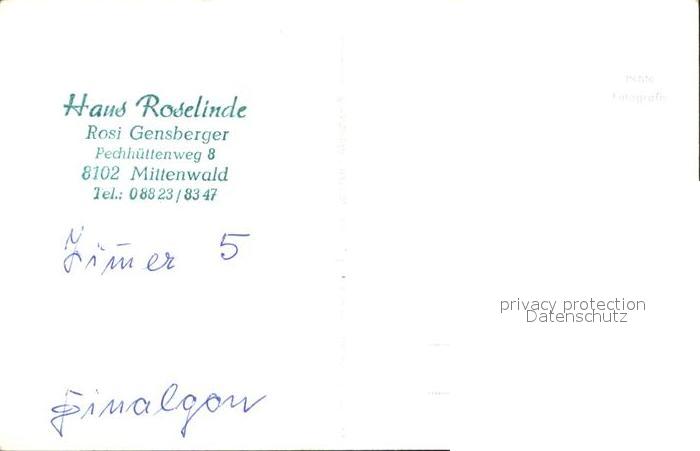 Haus Roselinde
Rosi Gensberger
Pechhüttenweg 8
8102 Mittenwald
Tel.: 08823/8347
Zim̅er 5
Finalgon
Echte
Fotografie
privacy protection
Datenschutz